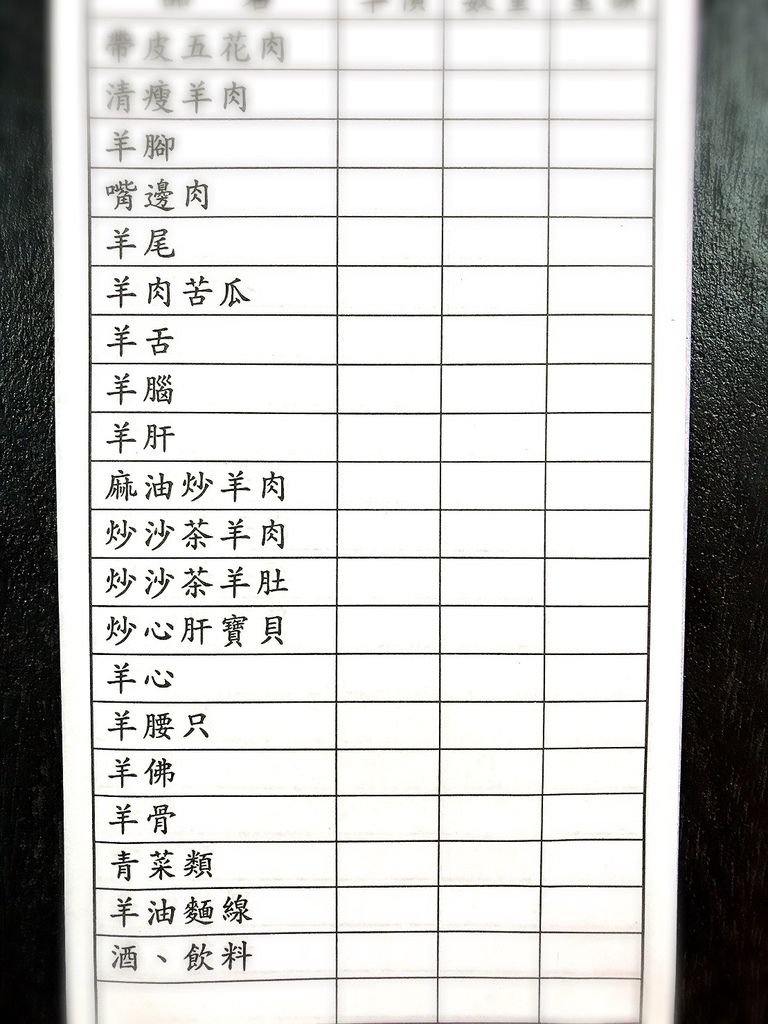 單價 數量 金額
帶皮五花肉
清瘦羊肉
羊腳
嘴邊肉
羊尾
羊肉苦瓜
羊舌
羊腦
羊肝
麻油炒羊肉
炒沙茶羊肉
炒沙茶羊肚
炒心肝寶貝
羊心
羊腰只
羊佛
羊骨
青菜類
羊油麵線
酒、飲料